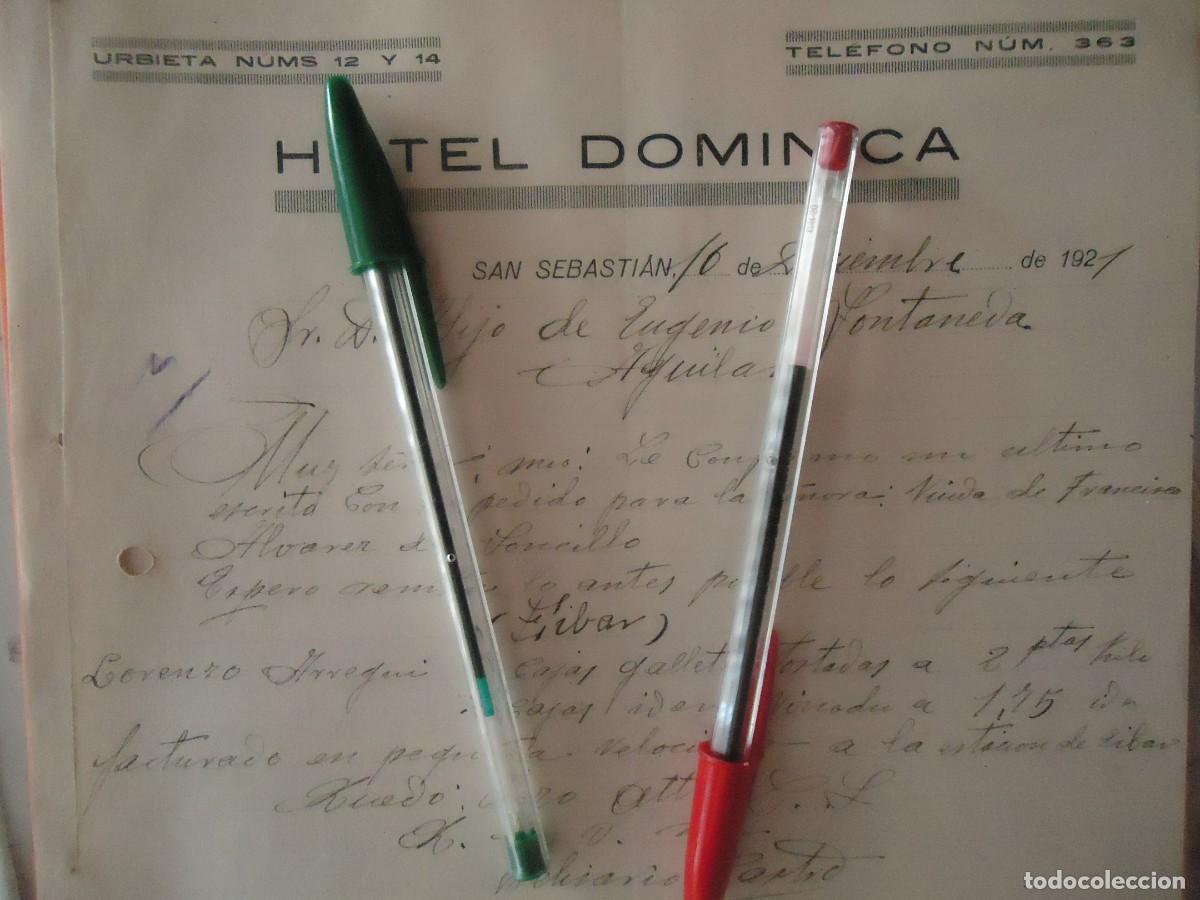 URBIETA NÚMS 12 Y 14
TELÉFONO NÚM. 363
HOTEL DOMINICA
SAN SEBASTIÁN, 16 de de 1921
Sr. D. Hijo de Eugenio Fontaneda
Aguilar
Muy mio: Le Confirmo mi ultimo
escrito Con pedido para la Señora: Viuda de Francisco
Alvarez de Soncillo
Espero lo antes posible lo siguiente
(Eibar)
Lorenzo Arregui cajas galletas tostadas a 2 ptas kilo
cajas idem a 1,75 idm
facturado en pequeña velocidad a la estacion de Eibar
Quedo suyo
Castro
todocoleccion